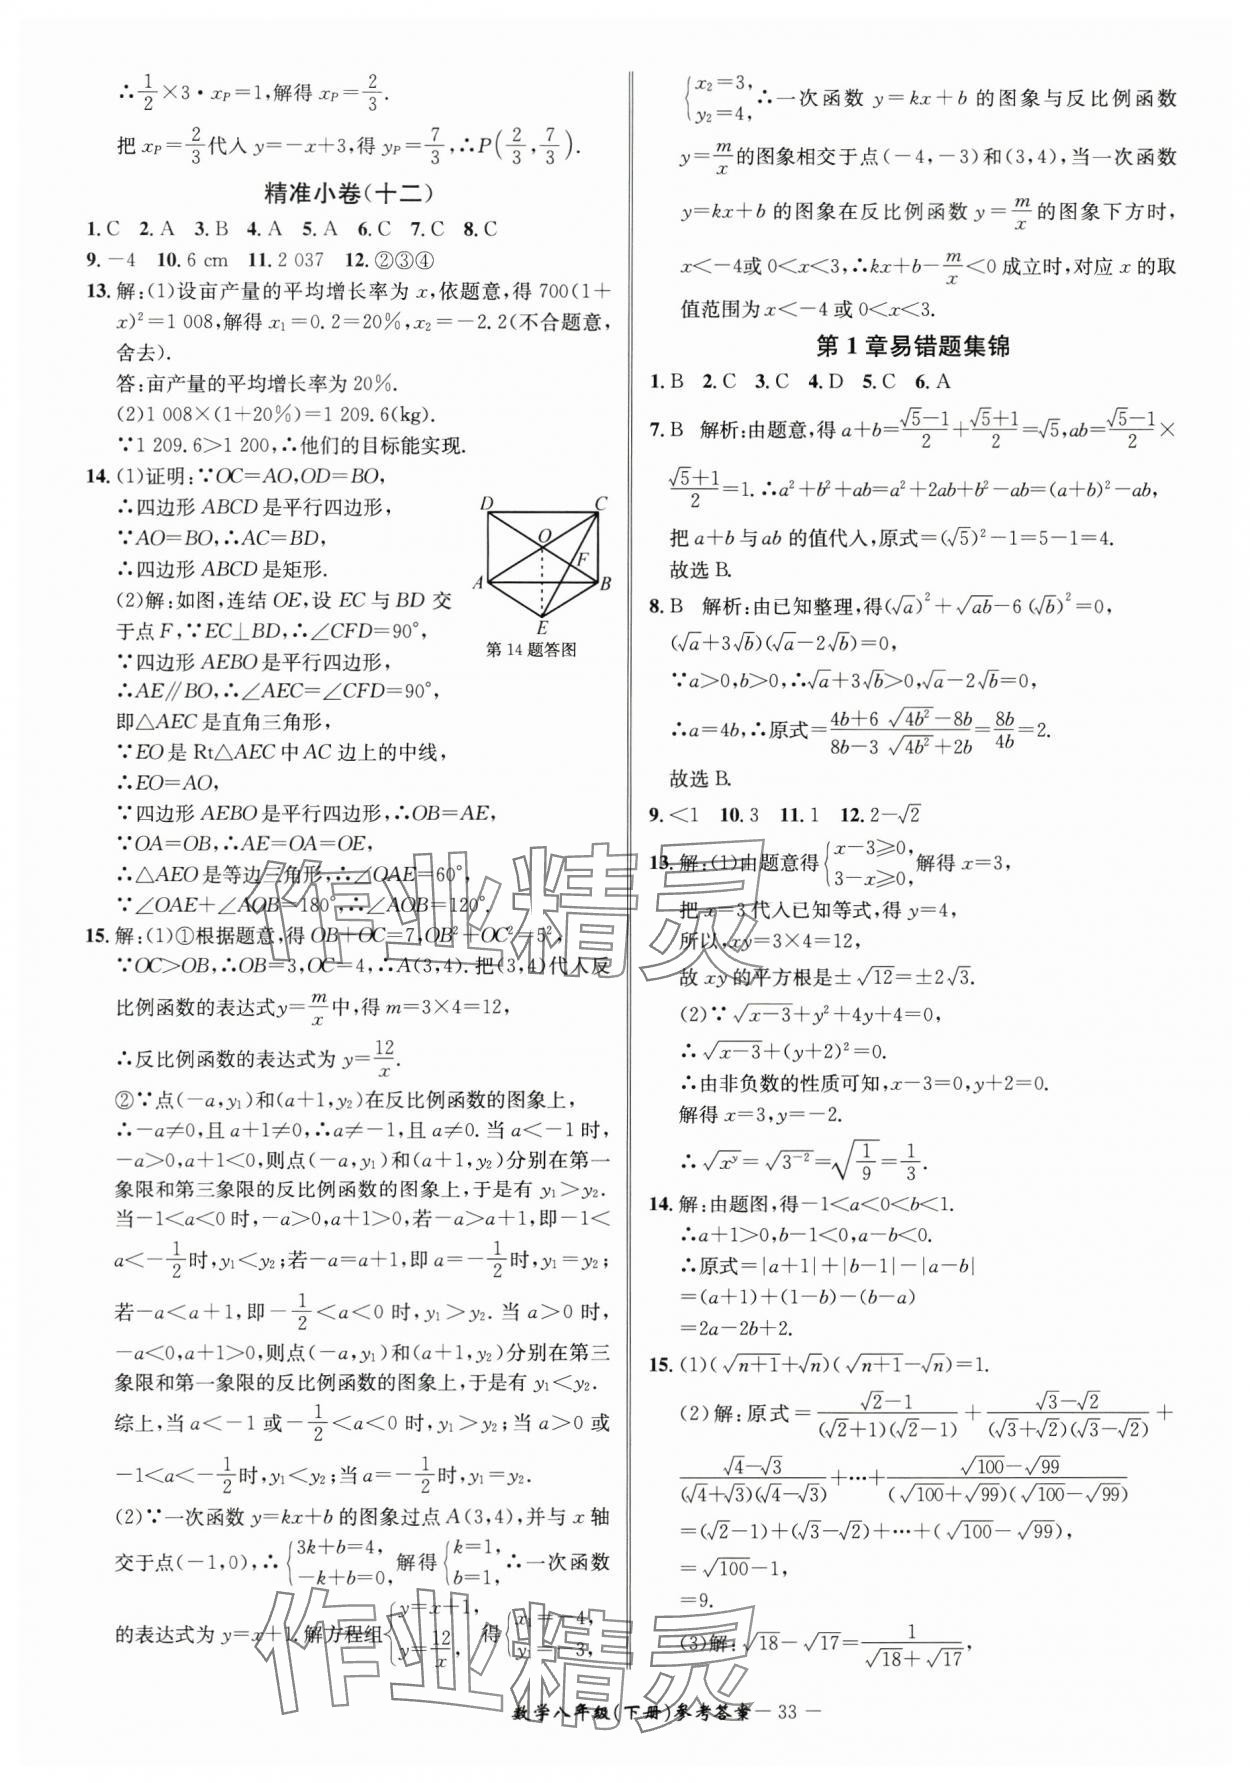 ∴1/2×3·x_P=1,解得 x_P=2/3.
把 x_P=2/3代入 y=-x+3,得 y_P=7/3,∴P(2/3,7/3).
精准小卷(十二)
1. C 2. A 3. B 4. A 5. A 6. C 7. C 8. C
9. -4 10. 6 cm 11. 2 037 12. ②③④
13. 解:(1)设亩产量的平均增长率为 x,依题意,得 700(1+
x)²=1 008,解得 x₁=0.2=20%,x₂=-2.2(不合题意,
舍去).
答:亩产量的平均增长率为 20%.
(2)1 008×(1+20%)=1 209.6(kg).
∵1 209.6>1 200,∴他们的目标能实现.
14. (1)证明:∵OC=AO,OD=BO,
∴四边形 ABCD 是平行四边形,
∵AO=BO,∴AC=BD,
∴四边形 ABCD 是矩形.
(2)解:如图,连结 OE,设 EC 与 BD 交
于点 F,∵EC⊥BD,∴∠CFD=90°,
∵四边形 AEBO 是平行四边形,
∴AE∥BO,∴∠AEC=∠CFD=90°,
即△AEC 是直角三角形,
∵EO 是 Rt△AEC 中 AC 边上的中线,
∴EO=AO,
∵四边形 AEBO 是平行四边形,∴OB=AE,
∵OA=OB,∴AE=OA=OE,
∴△AEO 是等边三角形,∴∠OAE=60°,
∵∠OAE+∠AOB=180°,∴∠AOB=120°.
D
C
O
F
A
B
E
第 14 题答图
15. 解:(1)①根据题意,得 OB+OC=7,OB²+OC²=5²,
∵OC>OB,∴OB=3,OC=4,∴A(3,4). 把(3,4)代入反
比例函数的表达式y=m/x中,得 m=3×4=12,
∴反比例函数的表达式为 y=12/x.
②∵点(-a,y₁)和(a+1,y₂)在反比例函数的图象上,
∴-a≠0,且 a+1≠0,∴a≠-1,且 a≠0. 当 a<-1 时,
-a>0,a+1<0,则点(-a,y₁)和(a+1,y₂)分别在第一
象限和第三象限的反比例函数的图象上,于是有 y₁>y₂.
当-1<a<0 时,-a>0,a+1>0,若-a>a+1,即-1<
a<-1/2时,y₁<y₂;若-a=a+1,即 a=-1/2时,y₁=y₂;
若-a<a+1,即-1/2<a<0 时,y₁>y₂. 当 a>0 时,
-a<0,a+1>0,则点(-a,y₁)和(a+1,y₂)分别在第三
象限和第一象限的反比例函数的图象上,于是有 y₁<y₂.
综上,当 a<-1 或-1/2<a<0 时,y₁>y₂;当 a>0 或
-1<a<-1/2时,y₁<y₂;当 a=-1/2时,y₁=y₂.
(2)∵一次函数 y=kx+b 的图象过点 A(3,4),并与 x 轴
交于点(-1,0),∴{3k+b=4, -k+b=0, 解得{k=1, b=1, ∴一次函数
的表达式为 y=x+1. 解方程组{y=x+1, y=12/x, 得{x₁=-4, y₁=-3,
{x₂=3, y₂=4, ∴一次函数 y=kx+b 的图象与反比例函数
y=m/x的图象相交于点(-4,-3)和(3,4),当一次函数
y=kx+b 的图象在反比例函数 y=m/x的图象下方时,
x<-4或 0<x<3,∴kx+b-m/x<0 成立时,对应 x 的取
值范围为 x<-4 或 0<x<3.
第 1 章易错题集锦
1. B 2. C 3. C 4. D 5. C 6. A
7. B 解析:由题意,得 a+b=(√5-1)/2+(√5+1)/2=√5,ab=(√5-1)/2×
(√5+1)/2=1. ∴a²+b²+ab=a²+2ab+b²-ab=(a+b)²-ab,
把 a+b 与 ab 的值代入,原式=(√5)²-1=5-1=4.
故选 B.
8. B 解析:由已知整理,得(√a)²+√ab-6(√b)²=0,
(√a+3√b)(√a-2√b)=0,
∵a>0,b>0,∴√a+3√b>0,√a-2√b=0,
∴a=4b,∴原式=(4b+6√4b²-8b)/(8b-3√4b²+2b)=8b/4b=2.
故选 B.
9. <1 10. 3 11. 1 12. 2-√2
13. 解:(1)由题意得{x-3≥0, 3-x≥0, 解得 x=3,
把 x=3代入已知等式,得 y=4,
所以,xy=3×4=12,
故 xy 的平方根是±√12=±2√3.
(2)∵√(x-3)+y²+4y+4=0,
∴√(x-3)+(y+2)²=0.
∴由非负数的性质可知,x-3=0,y+2=0.
解得 x=3,y=-2.
∴√(x^y)=√(3⁻²)=√(1/9)=1/3.
14. 解:由题图,得-1<a<0<b<1.
∴a+1>0,b-1<0,a-b<0.
∴原式=|a+1|+|b-1|-|a-b|
=(a+1)+(1-b)-(b-a)
=2a-2b+2.
15. (1)(√(n+1)+√n)(√(n+1)-√n)=1.
(2)解:原式=(√2-1)/((√2+1)(√2-1))+(√3-√2)/((√3+√2)(√3-√2))+
(√4-√3)/((√4+√3)(√4-√3))+…+(√100-√99)/((√100+√99)(√100-√99))
=(√2-1)+(√3-√2)+…+(√100-√99),
=√100-1,
=9.
(3)解:√18-√17=1/(√18+√17),
作业精灵
作业精灵
数学八年级(下册)参考答案 — 33 —